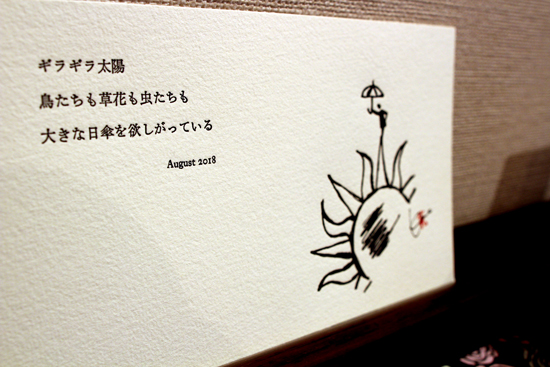 ギラギラ太陽
鳥たちも草花も虫たちも
大きな日傘を欲しがっている
August 2018